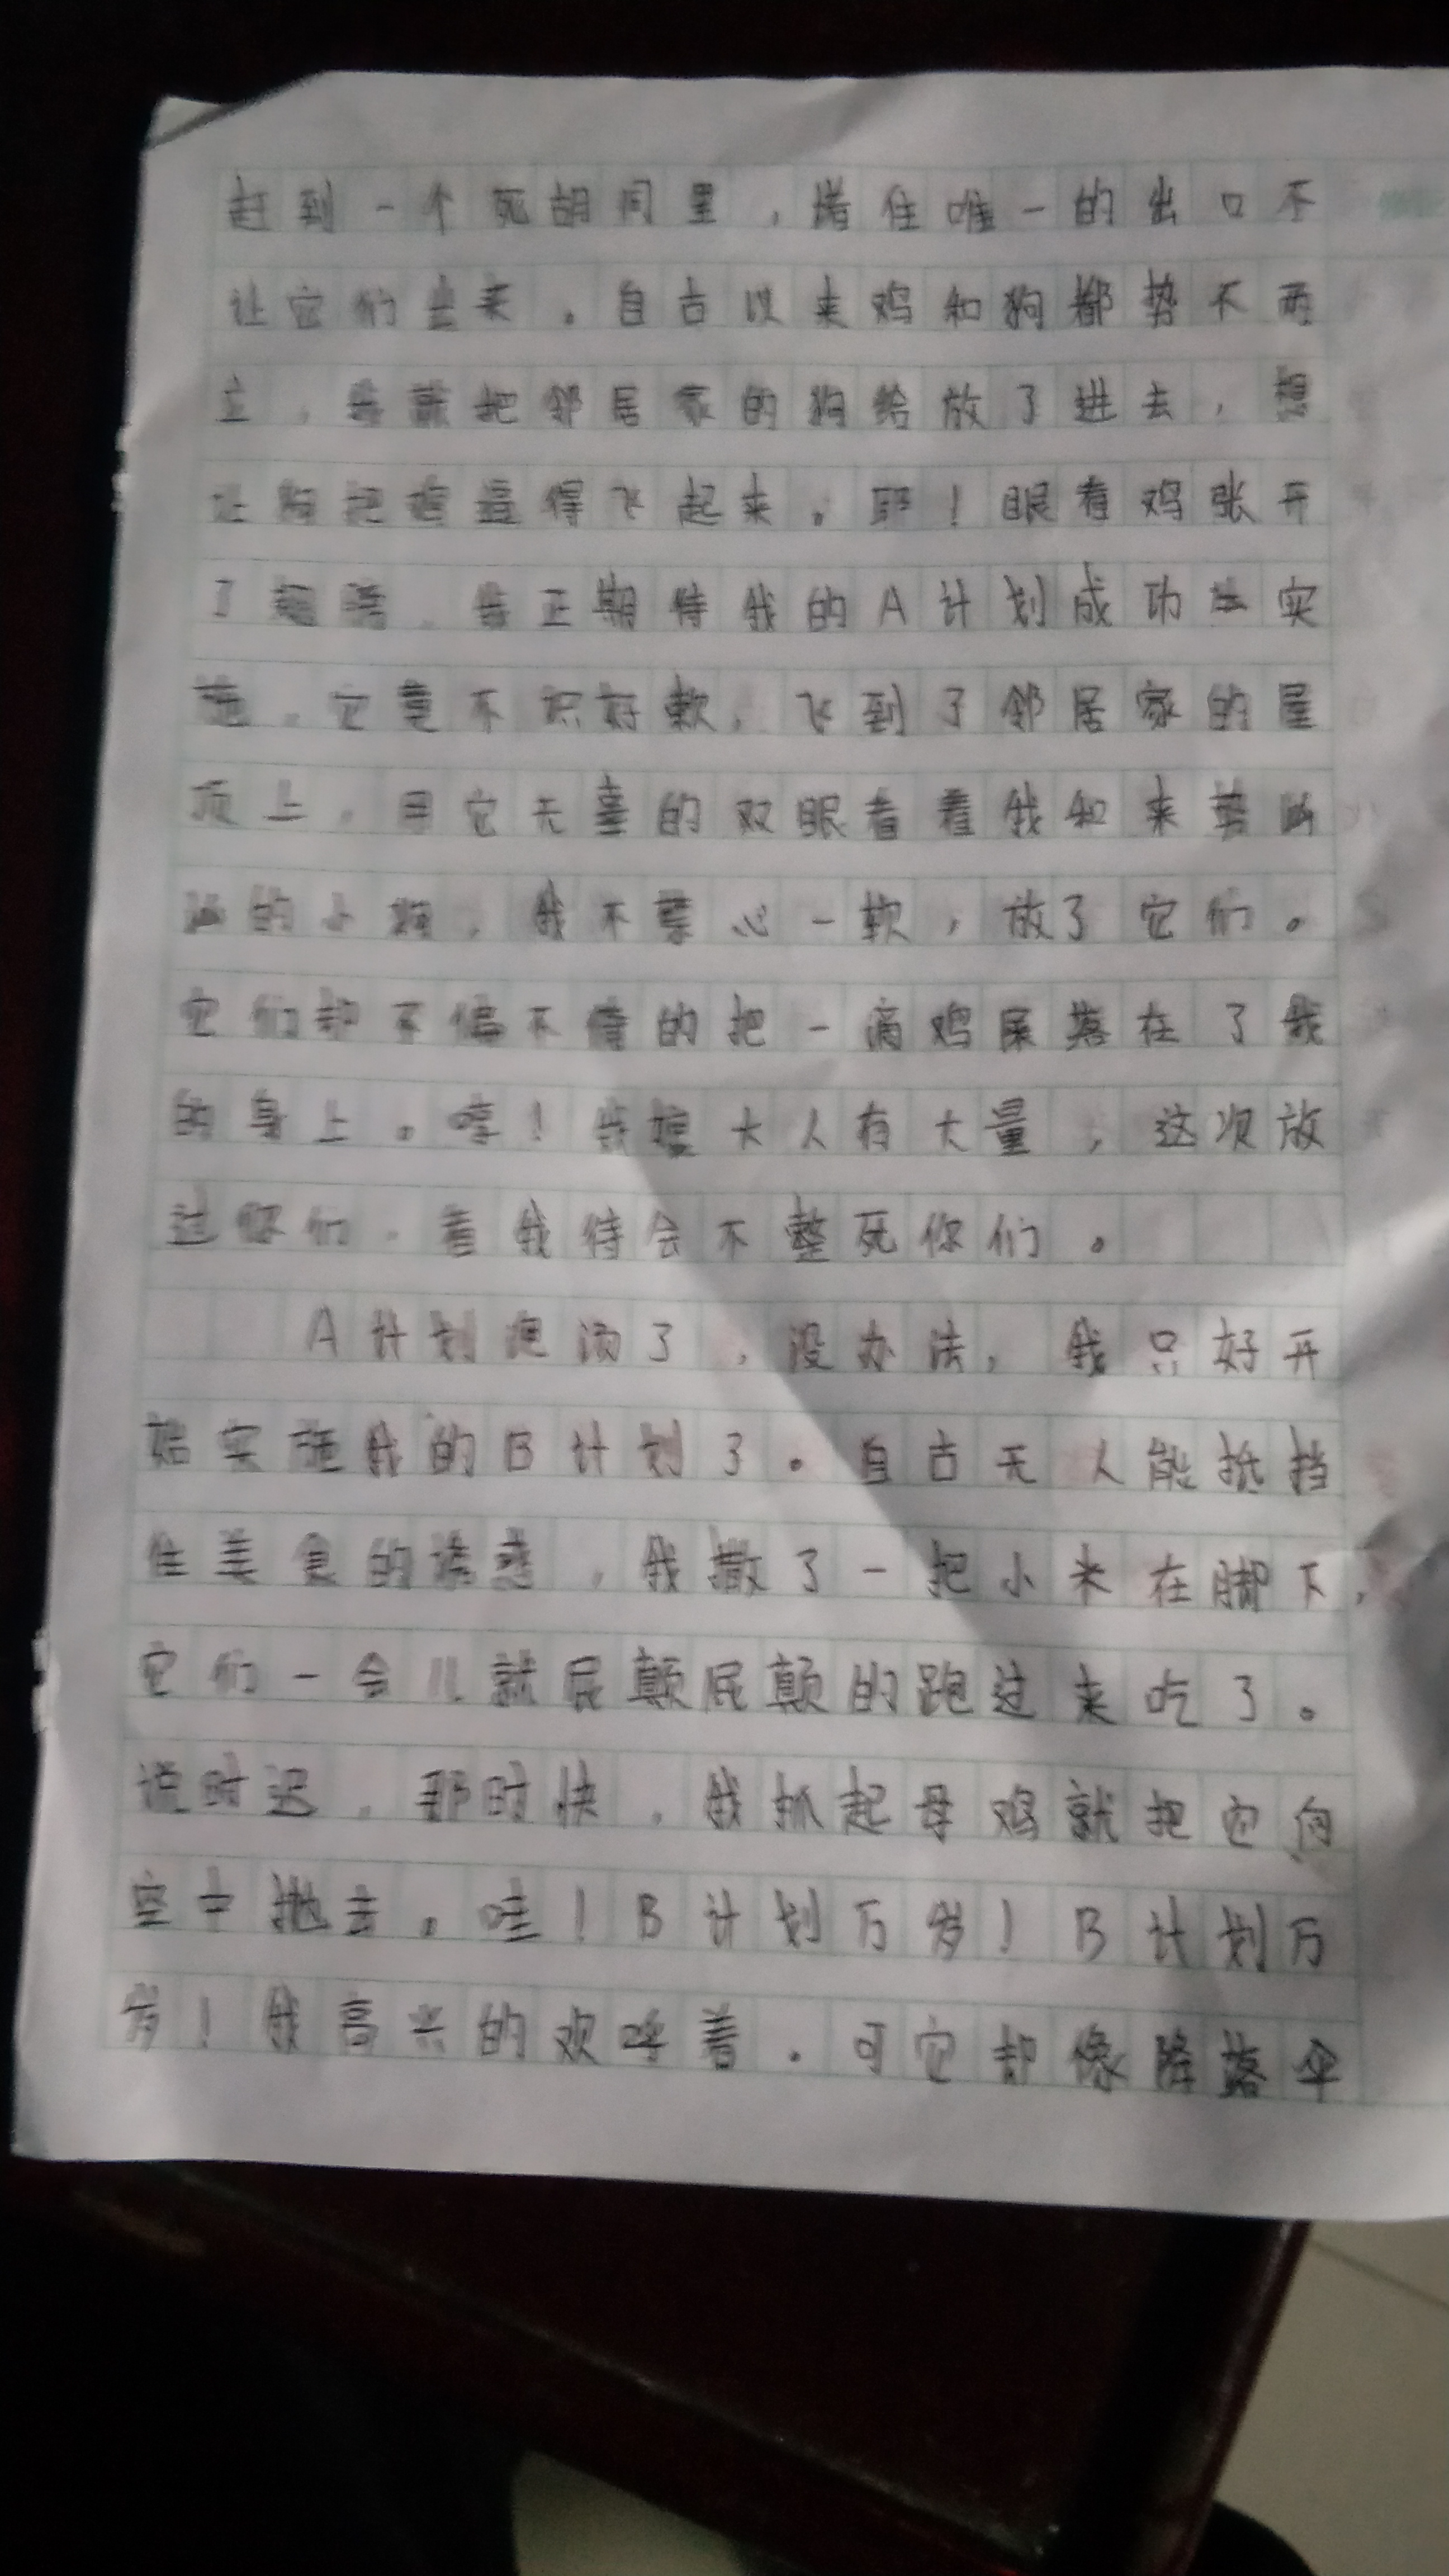 赶到一个死胡同里，堵住唯一的出口不
让它们出来。自古以来鸡和狗都势不两
立，我就把邻居家的狗给放了进去，想
让狗把鸡逼得飞起来。耶！眼看鸡张开
了翅膀，我正期待我的A计划成功实
施，它竟不识好歉，飞到了邻居家的屋
顶上，用它无辜的双眼看着我和来势汹
汹的小狗，我不禁心一软，放了它们。
它们却不偏不倚的把一滴鸡屎落在了我
的身上。哼！我大人有大量，这次放
过你们，看我待会不整死你们。
A计划泡汤了，没办法，我只好开
始实施我的B计划了。自古无人能抵挡
住美食的诱惑，我撒了一把小米在脚下，
它们一会儿就屁颠屁颠的跑过来吃了。
说时迟，那时快，我抓起母鸡就把它向
空中抛去。哇！B计划万岁！B计划万
岁！我高兴的欢呼着。可它却像降落伞